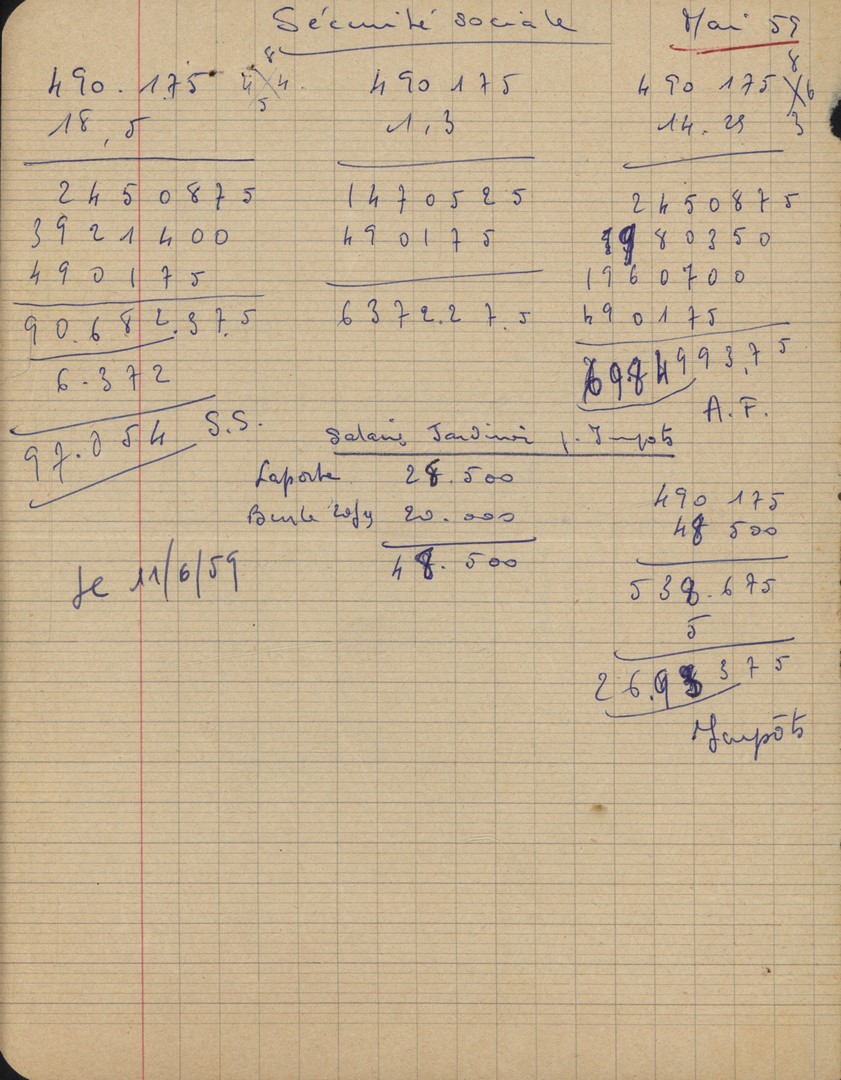 Sécurité sociale
Mai 59
490.175
18,5
2450875
3921400
490175
90.682.37.5
6.372
97.054 S.S.
8
4 4
5
490175
1,3
1470525
490175
6372.27.5
490 175
14.25
2450875
980350
1960700
490175
6984993,75
A.F.
8
6
3
Salaires Jardinier p. Impôts
Laporte 28.500
20.000
48.500
490 175
48 500
538.675
5
26.933 75
Impôts
le 11/6/59